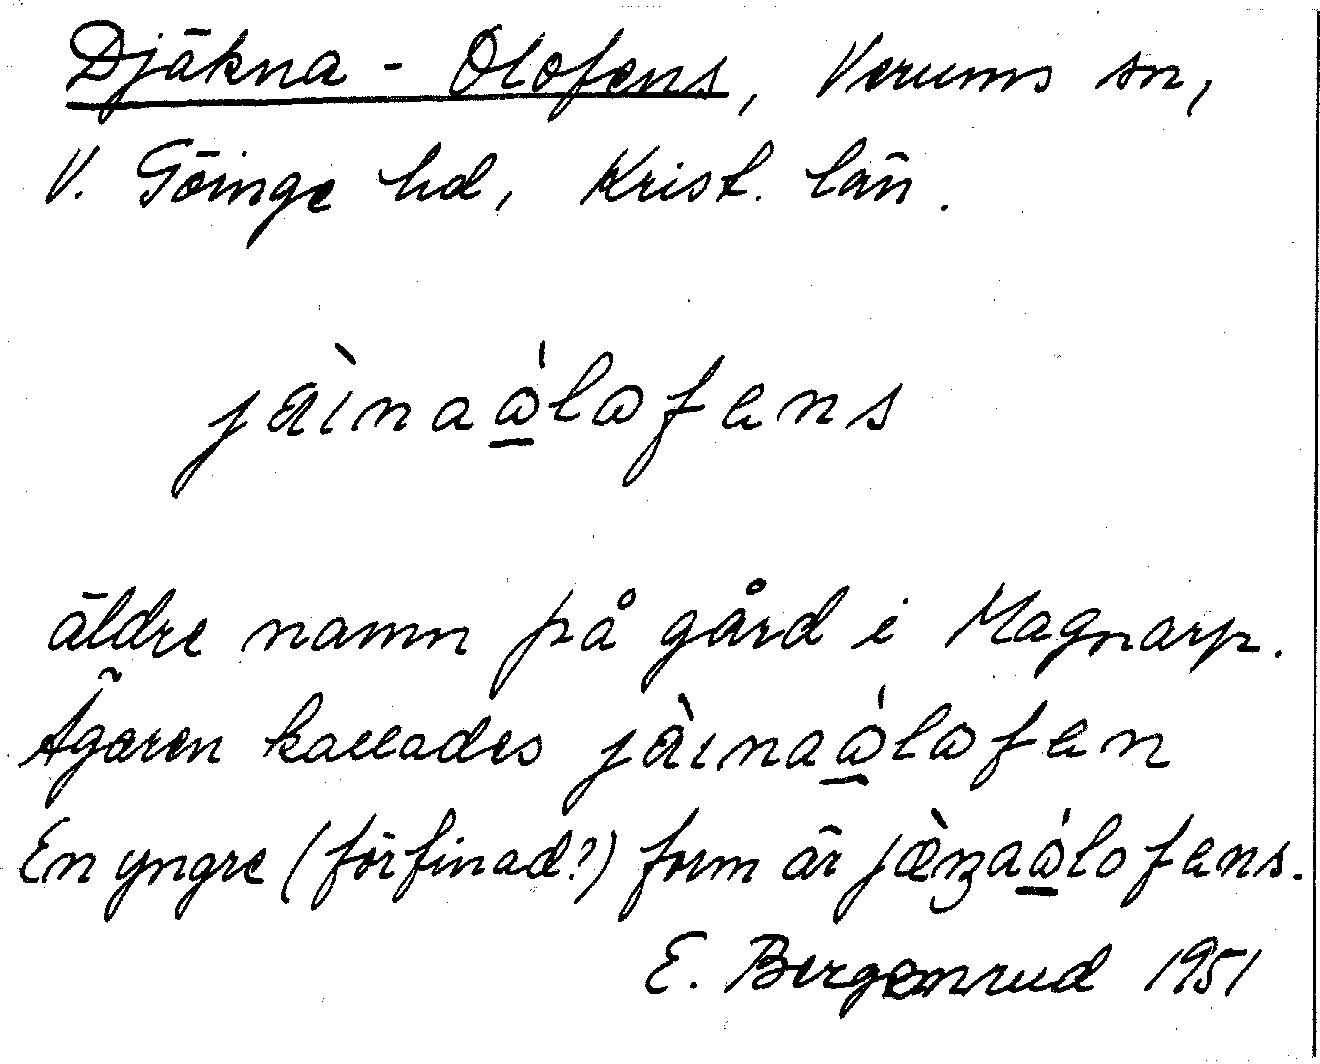 Djäkna - Olofens, Verums sn,
V. Göinge hd, Krist. län.
jàinaólofens
äldre namn på gård i Magnarp.
Ägaren kallades jàinaólofen
En yngre (förfinad?) form är jæ̀ŋaólofens.
E. Bergenrud 1951